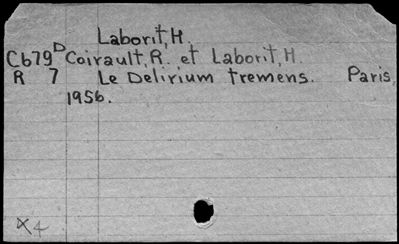 Laborit, H.
C679D Coirault, R. et Laborit, H.
R 7 Le Delirium tremens. Paris,
1956.
X4